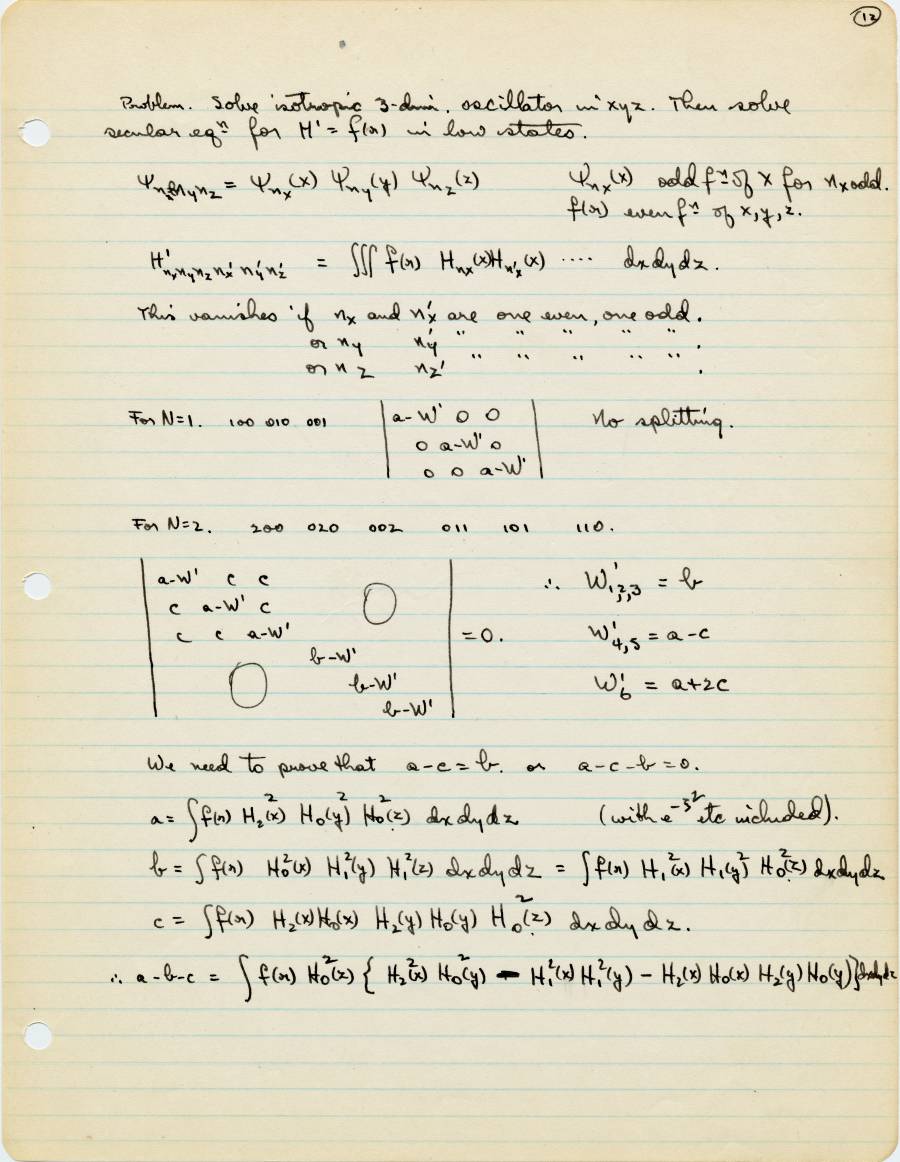 12
Problem. Solve isotropic 3-dim. oscillator in xyz. Then solve
secular eqⁿ for H' = f(r) in low states.
Ψ_{n_x n_y n_z} = Ψ_{n_x}(x) Ψ_{n_y}(y) Ψ_{n_z}(z) Ψ_{n_x}(x) odd fⁿ of x for n_x odd.
f(r) even fⁿ of x, y, z.
H'_{n_x n_y n_z n_x' n_y' n_z'} = ∭ f(r) H_{n_x}(x) H_{n_x'}(x) .... dx dy dz.
This vanishes if n_x and n_x' are one even, one odd.
or n_y n_y' " " " " " .
or n_z n_z' " " " " " .
For N=1. 100 010 001 | a-W' 0 0 | No splitting.
| 0 a-W' 0 |
| 0 0 a-W' |
For N=2. 200 020 002 011 101 110.
| a-W' c c | ∴ W'_{1,2,3} = b
| c a-W' c 0 |
| c c a-W' | = 0. W'_{4,5} = a-c
| b-W' |
| 0 b-W' | W'_6 = a+2c
| b-W' |
We need to prove that a-c = b. or a-c-b = 0.
a = ∫ f(r) H_2²(x) H_0²(y) H_0²(z) dx dy dz (with e^{-ξ²} etc included).
b = ∫ f(r) H_0²(x) H_1²(y) H_1²(z) dx dy dz = ∫ f(r) H_1²(x) H_1(y)² H_0²(z) dx dy dz
c = ∫ f(r) H_2(x) H_0(x) H_2(y) H_0(y) H_0²(z) dx dy dz.
∴ a-b-c = ∫ f(r) H_0²(z) { H_2²(x) H_0²(y) - H_1²(x) H_1²(y) - H_2(x) H_0(x) H_2(y) H_0(y) } dx dy dz